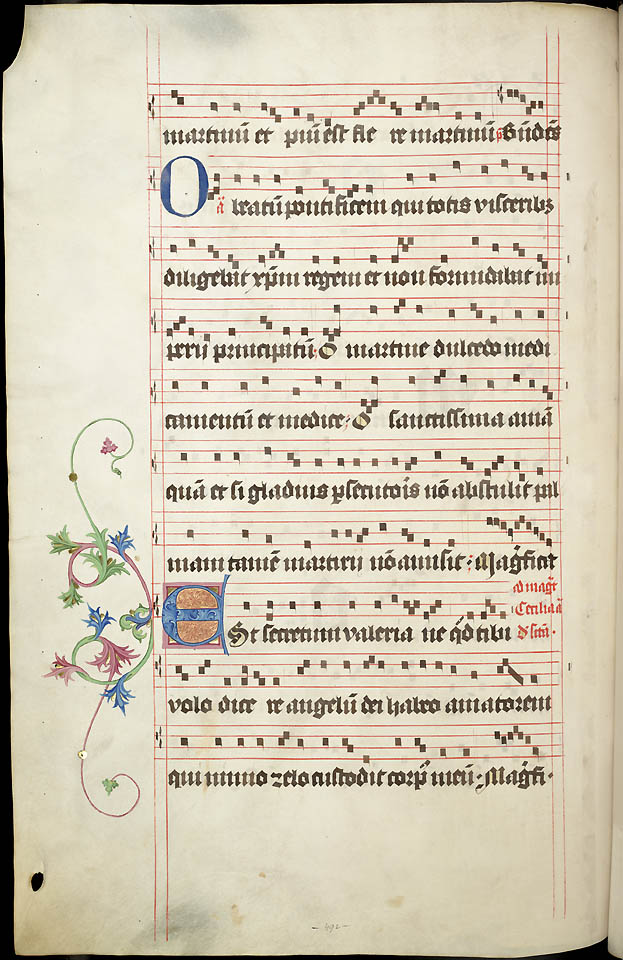 martinū et piū est fle re martinū B̄ndc̄s
O ā beatū pontificem qui totis visceribꝫ
diligebat xp̄m regem et non formidabat im
perij principatū : O martine dulcedo medi
camentū et medice : O sanctissima aīa
quā et si gladius ꝑsecutoīs nō abstulit pal
mam tamē martirij nō amisit : Mag̃ficat
ad mag̃t
Cecilia ā
ESt secretum valeria ne qd̄ tibi
volo dice re angelū dei habeo amatorem
qui nimio zelo custodit corpꝰ meū : Mag̃fi·
- 492 -